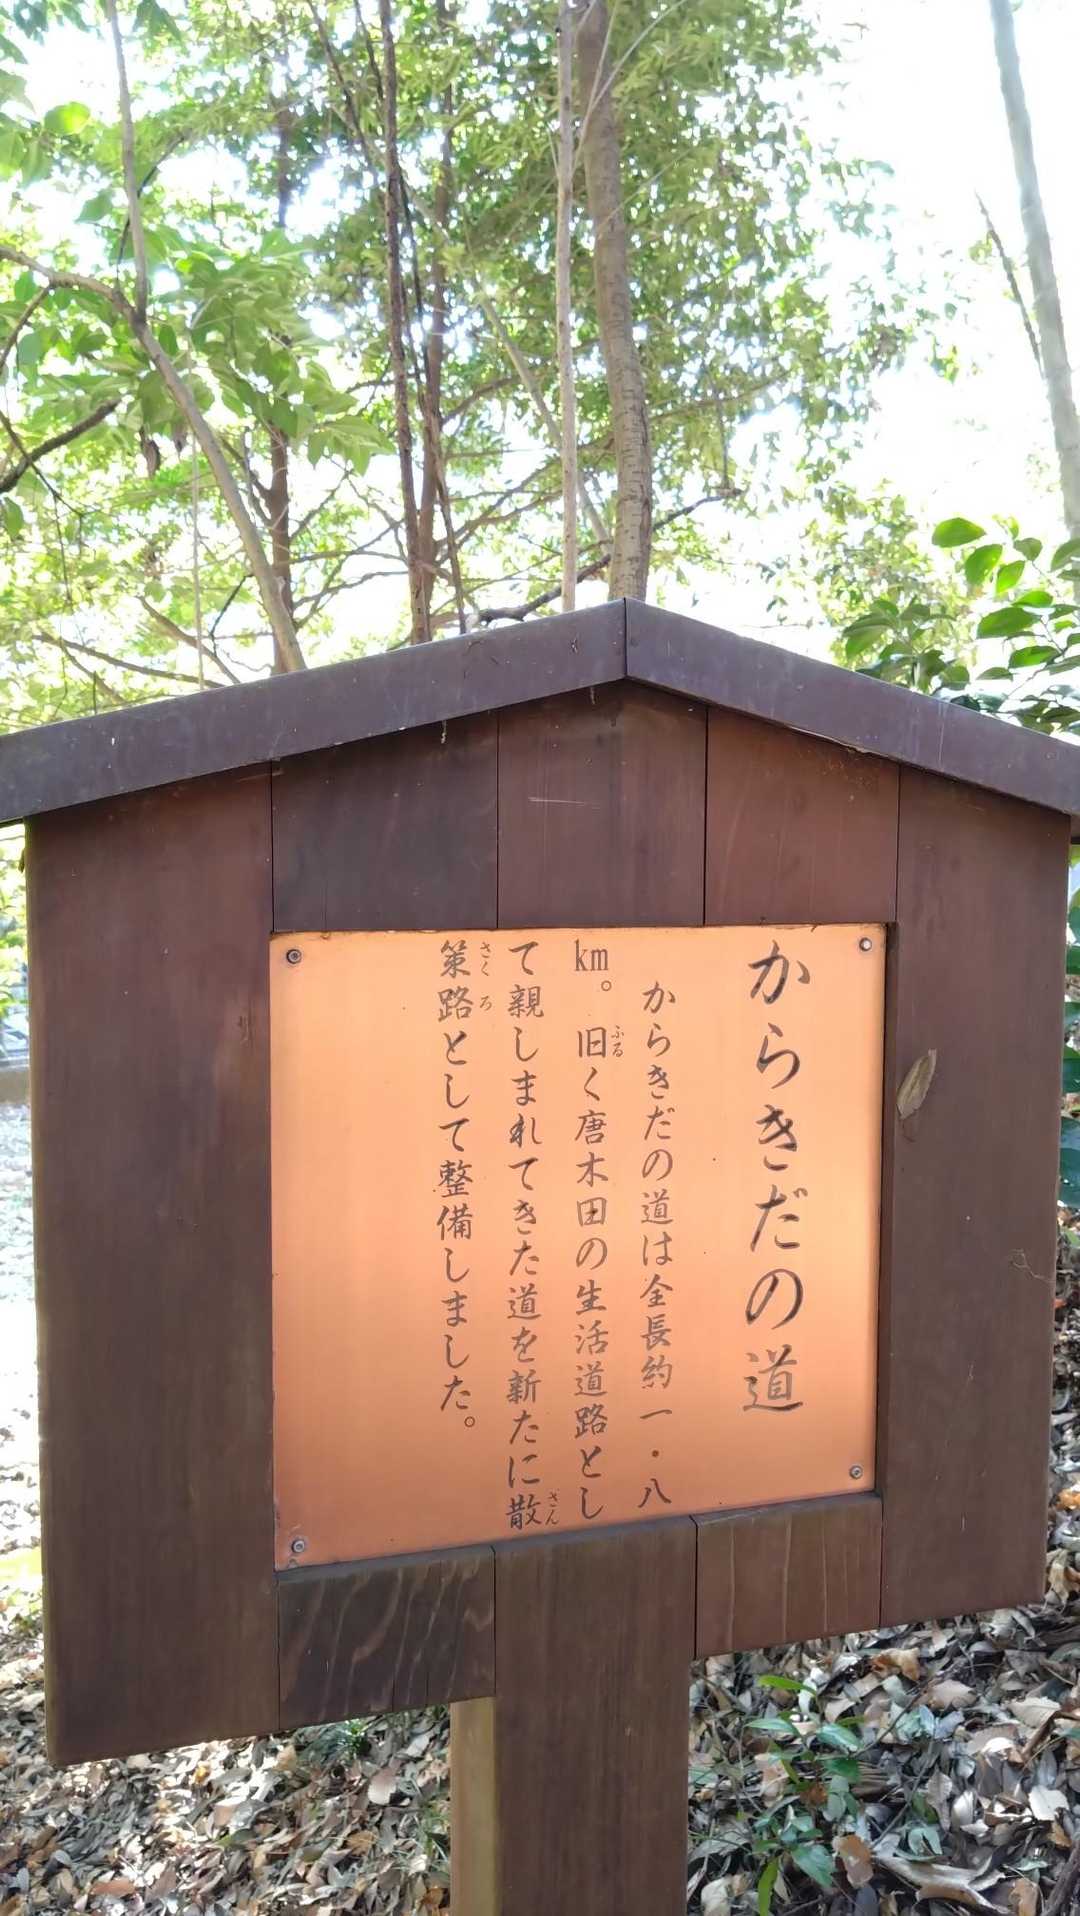 からきだの道
からきだの道は全長約一・八
km。旧く唐木田の生活道路とし
ふる
て親しまれてきた道を新たに散
さん
策路として整備しました。
さくろ